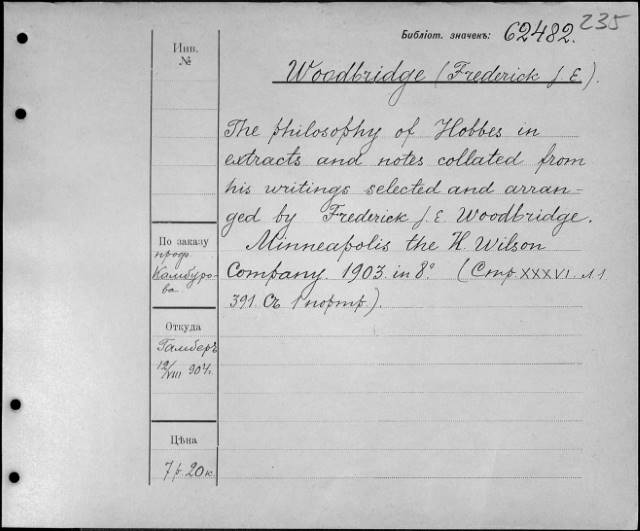 235
Библіот. значекъ: 62482.
Инв.
№
Woodbridge (Frederick J. E.).
The philosophy of Hobbes in
extracts and notes collated from
his writings selected and arran-
ged by Frederick J. E. Woodbridge.
Minneapolis the H. Wilson
Company. 1903. in 8°. (Стр. XXXVI.
391. Съ 1 портр.).
По заказу
проф.
Камбуро-
ва
Откуда
Гамберъ
12/VIII 904.
Цѣна
7 р. 20 к.